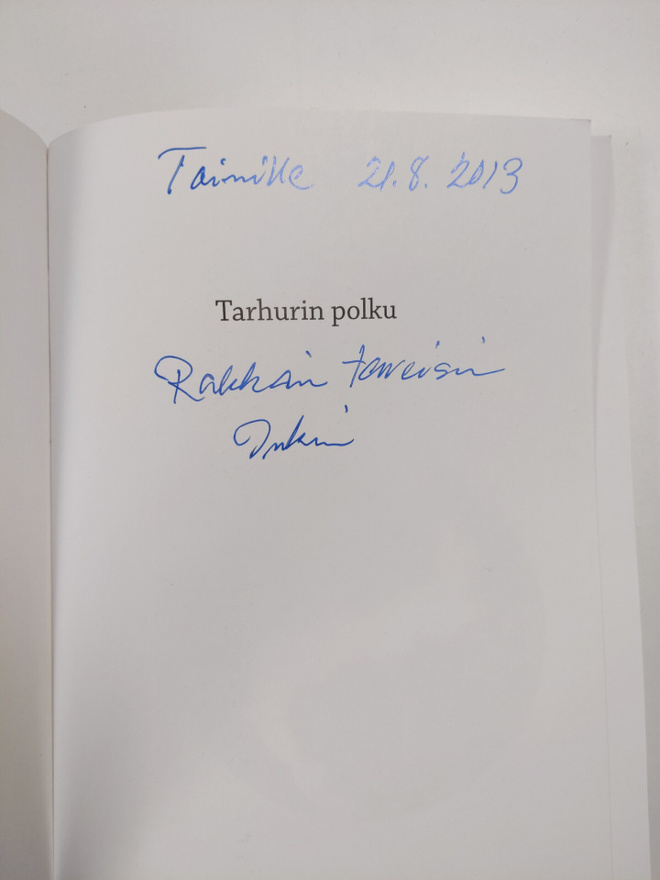 Tainille 21.8.2013
Tarhurin polku
Rakkain terveisin